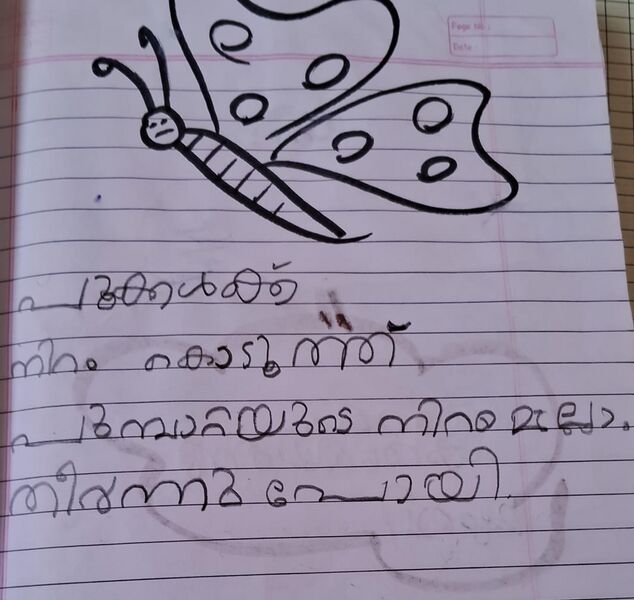 Page No:
Date
പൂക്കൾക്ക്
നിറം കൊടുത്ത്
പൂമ്പാറ്റയുടെ നിറമെല്ലാം.
തീർന്നു പോയി.